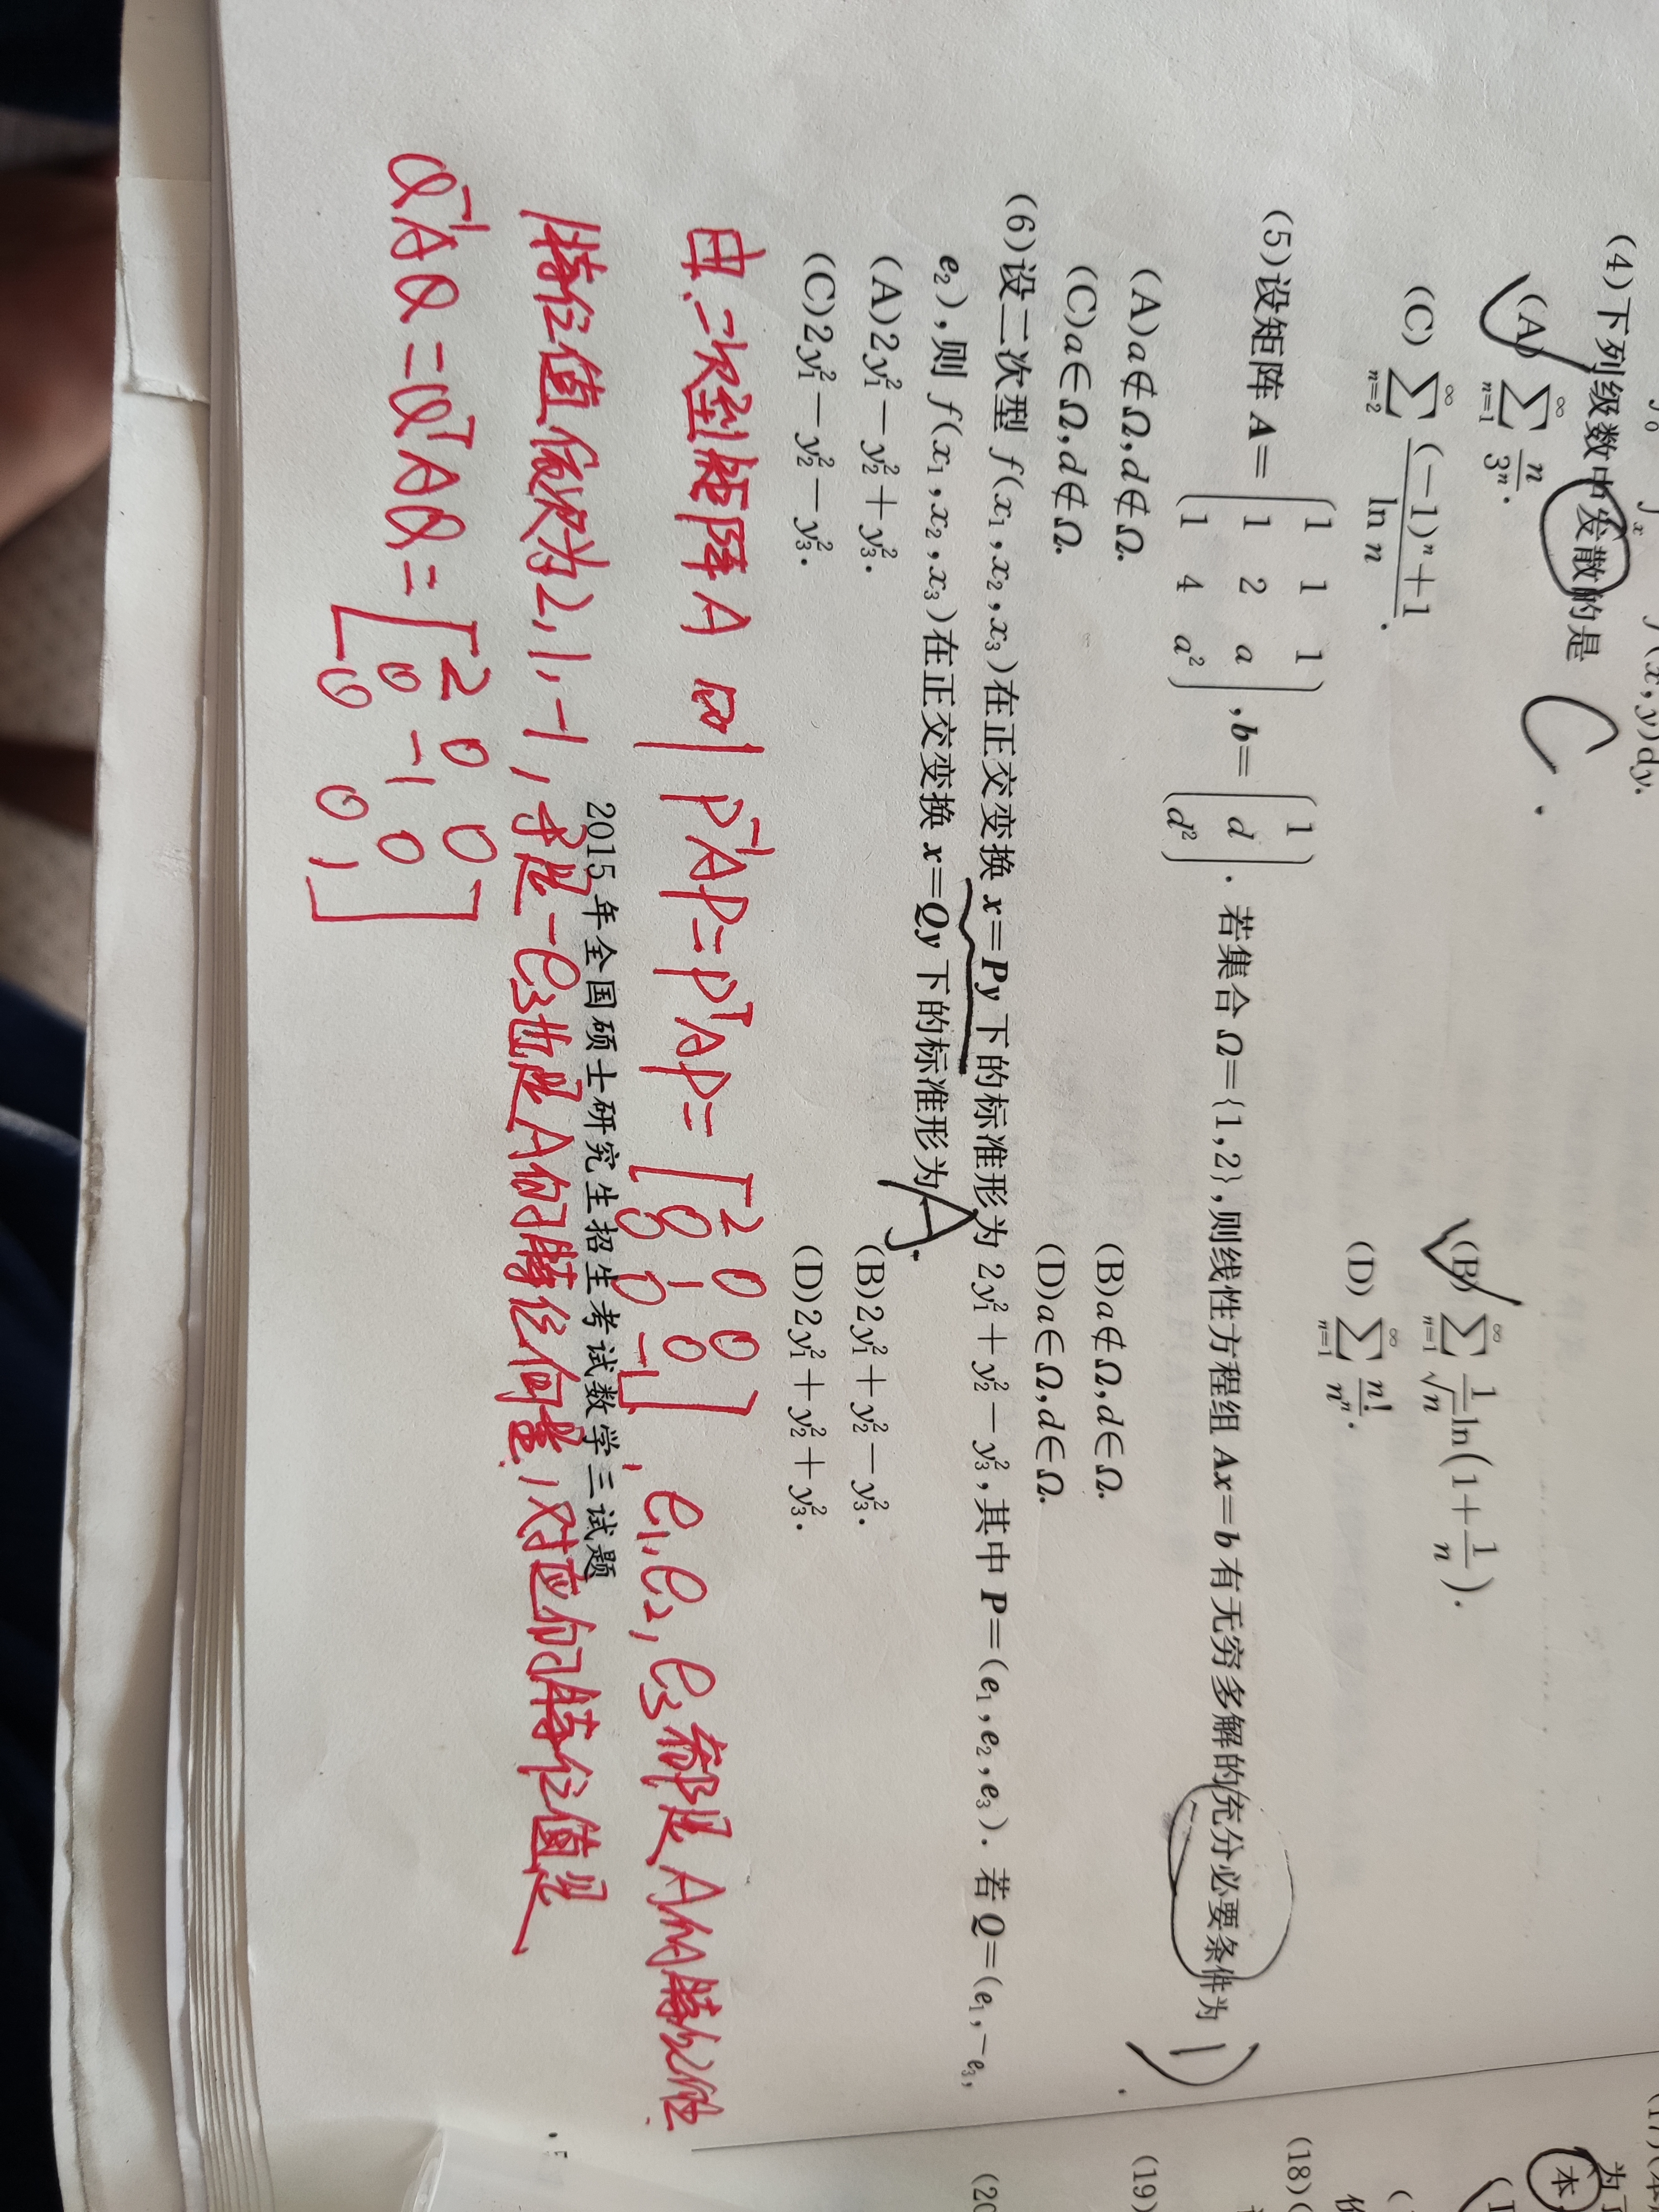 (4)下列级数中发散的是 C .
(A) $\sum_{n=1}^{\infty} \frac{n}{3^n}$. (B) $\sum_{n=1}^{\infty} \frac{1}{\sqrt{n}}\ln(1+\frac{1}{n})$.
(C) $\sum_{n=2}^{\infty} \frac{(-1)^n+1}{\ln n}$. (D) $\sum_{n=1}^{\infty} \frac{n!}{n^n}$.
(5)设矩阵 $A=\begin{pmatrix}1&1&1\\1&2&a\\1&4&a^2\end{pmatrix}$,$b=\begin{pmatrix}1\\d\\d^2\end{pmatrix}$. 若集合 Ω={1,2},则线性方程组 Ax=b 有无穷多解的充分必要条件为 D .
(A)a∉Ω,d∉Ω. (B)a∉Ω,d∈Ω.
(C)a∈Ω,d∉Ω. (D)a∈Ω,d∈Ω.
(6)设二次型 $f(x_1,x_2,x_3)$在正交变换 x=Py 下的标准形为 $2y_1^2+y_2^2-y_3^2$,其中 $P=(e_1,e_2,e_3)$. 若 $Q=(e_1,-e_3,$
$e_2)$,则 $f(x_1,x_2,x_3)$在正交变换 x=Qy 下的标准形为 A .
(A)$2y_1^2-y_2^2+y_3^2$. (B)$2y_1^2+y_2^2-y_3^2$.
(C)$2y_1^2-y_2^2-y_3^2$. (D)$2y_1^2+y_2^2+y_3^2$.
由二次型矩阵A 即 $P^{-1}AP=P^TAP=\begin{bmatrix}2&0&0\\0&1&0\\0&0&-1\end{bmatrix}$, $e_1,e_2,e_3$都是A的特征
2015年全国硕士研究生招生考试数学三试题
特征值依次为2,1,-1,于是$-e_3$也是A的特征向量,对应的特征值是
$Q^{-1}AQ=Q^TAQ=\begin{bmatrix}2&0&0\\0&-1&0\\0&0&1\end{bmatrix}$
(18)(
(19)
(20